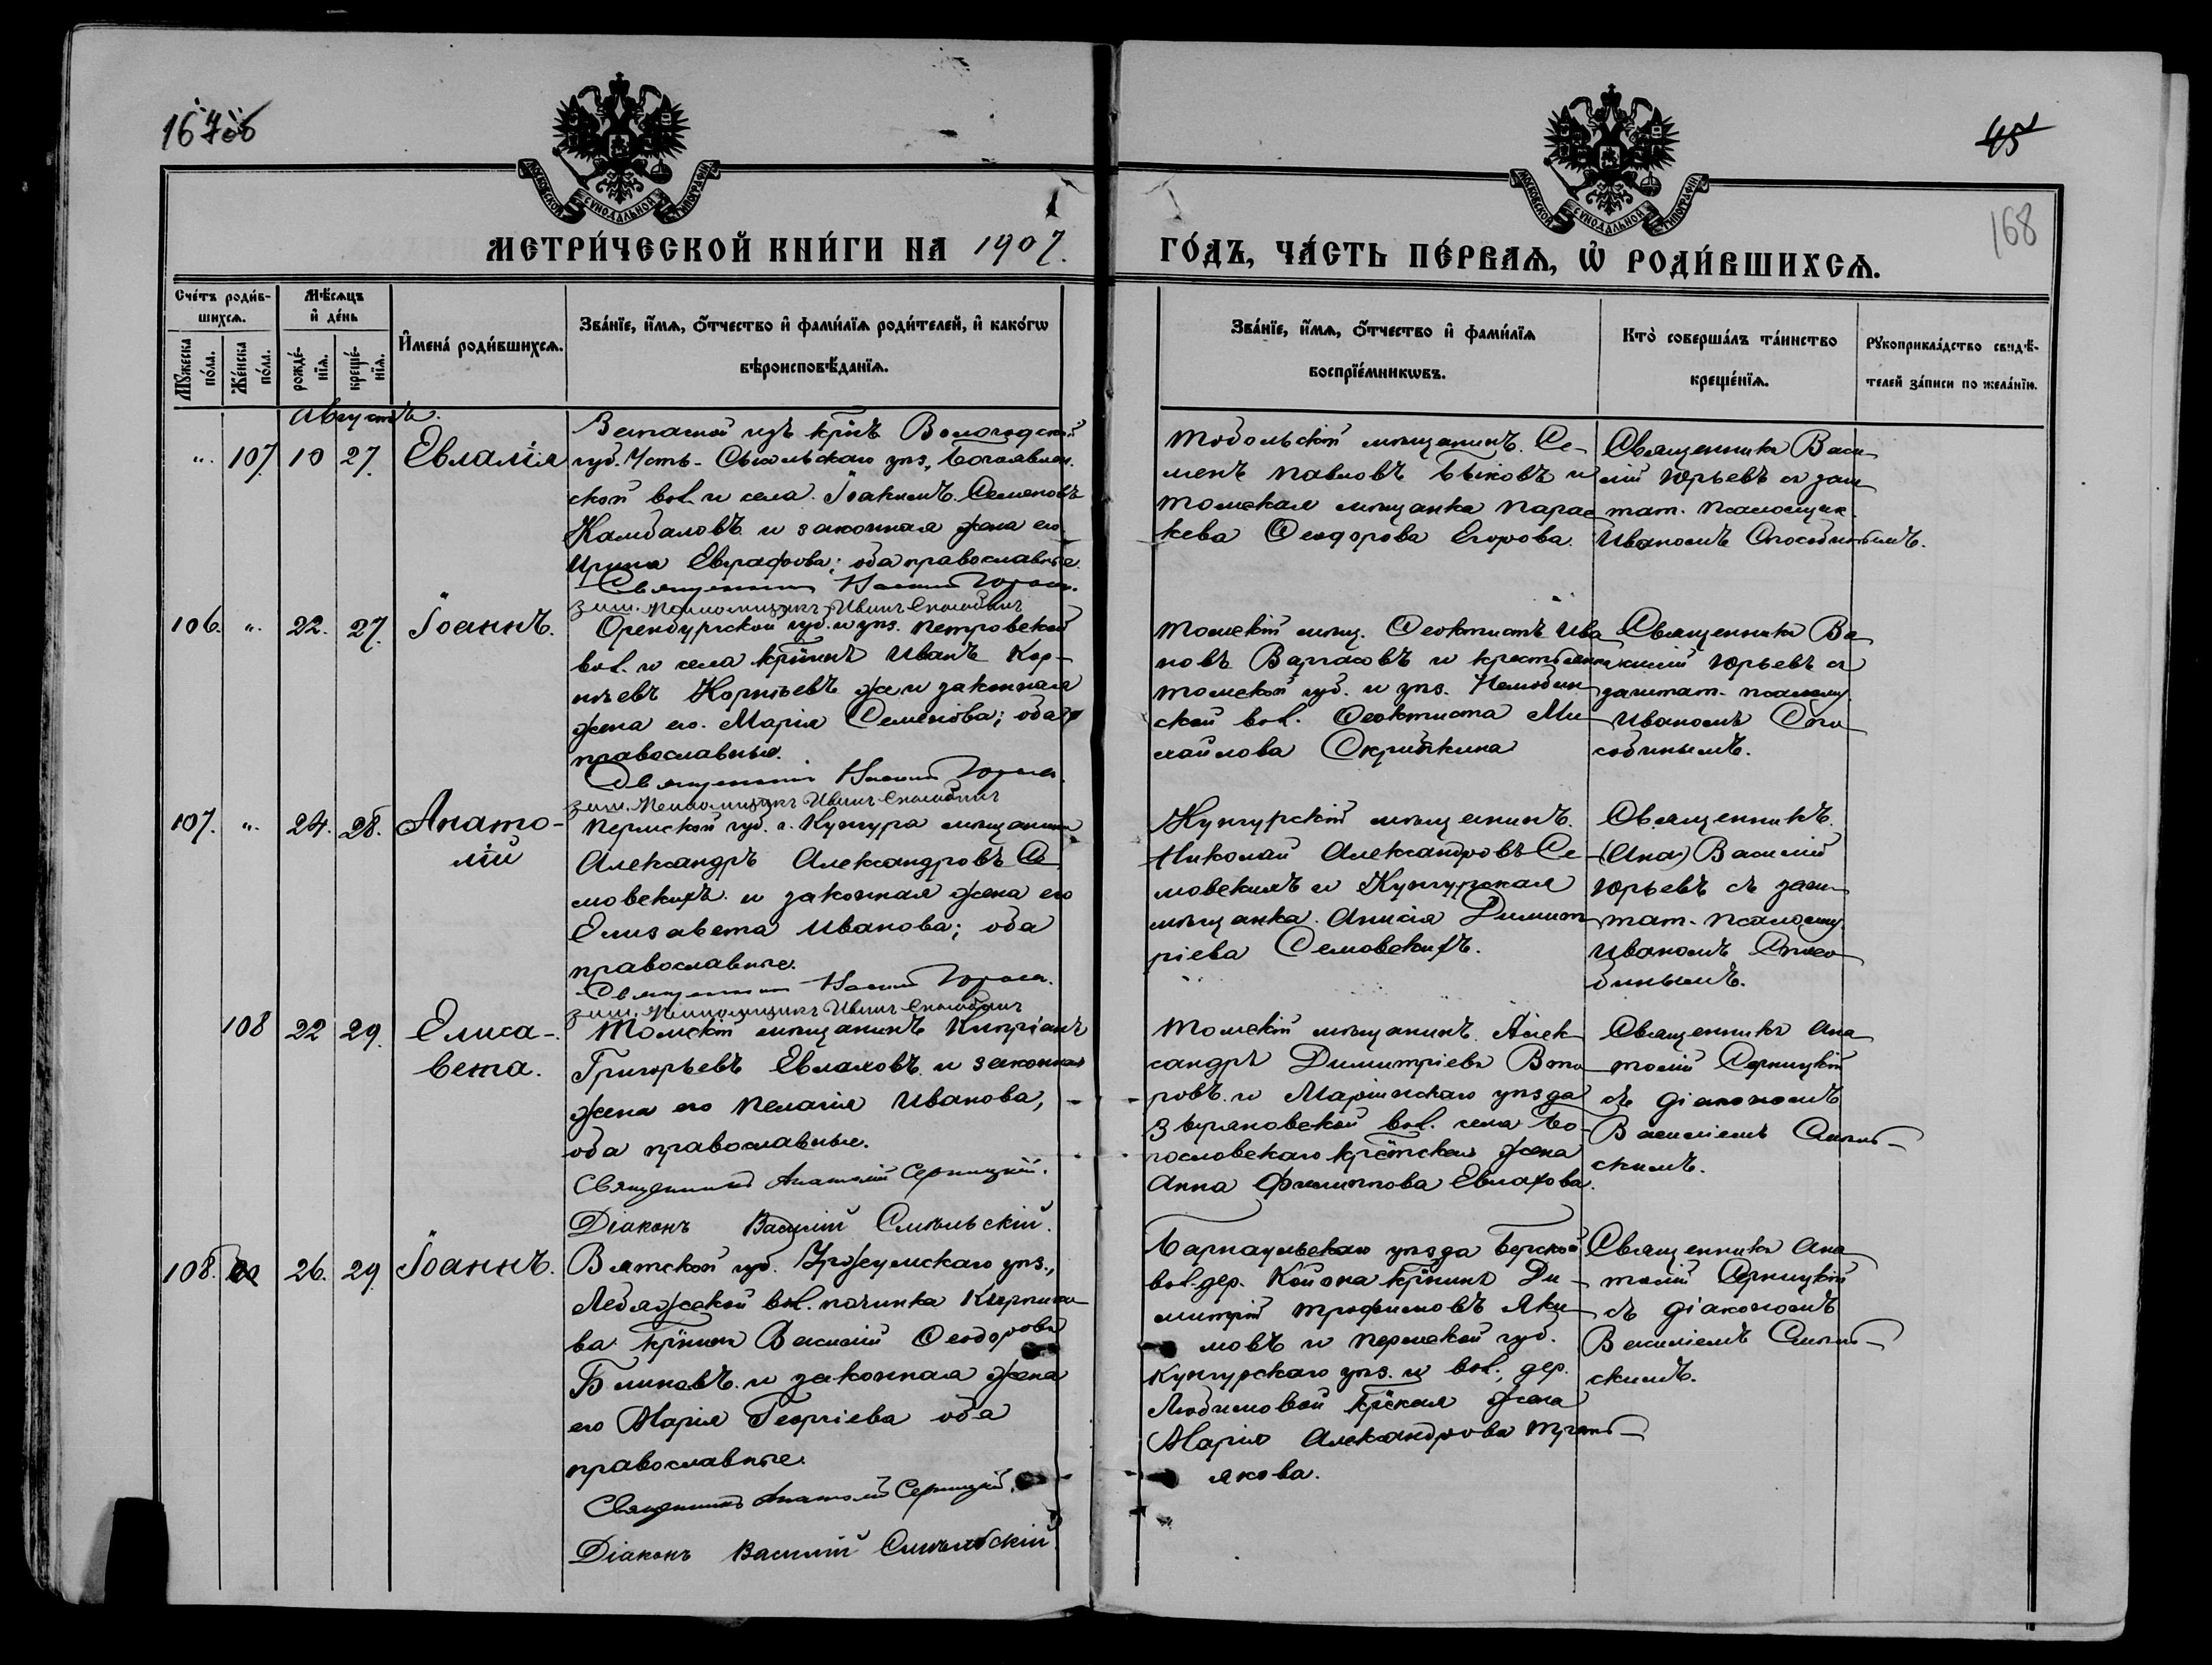 45
168
МОСКОВСКОЙ СѴНОДАЛЬНОЙ ТИПОГРАФІИ
МОСКОВСКОЙ СѴНОДАЛЬНОЙ ТИПОГРАФІИ
МЕТРИ́ЧЕСКОЙ КНИ́ГИ НА 1907.
ГО́ДЪ, ЧА́СТЬ ПЕ́РВАѦ, Ѡ҆ РОДИ́ВШИХСѦ.
Сче́тъ роди́в-
шихсѧ.
Мꙋ́жеска
по́ла.
Же́нска
по́ла.
Мѣ́сѧцъ
и҆ де́нь
рожде́-
нїѧ.
креще́-
нїѧ.
И҆мена̀ роди́вшихсѧ.
Зва́нїе, и҆́мѧ, ѻ҆́тчество и҆ фами́лїѧ роди́телей, и҆ како́гѡ
вѣроисповѣ́данїѧ.
Зва́нїе, и҆́мѧ, ѻ҆́тчество и҆ фами́лїѧ
воспрїе́мникѡвъ.
Кто̀ соверша́лъ та́инство
креще́нїѧ.
Рꙋкоприкла́дство свидѣ́-
телей за́писи по жела́нїю.
Августъ.
„ 107. 10 27. Евлалія
изъ крнъ Вологодской
губ. Усть-Сысольскаго уѣз., Богоявлен-
ской вол. и села Іоакимъ Семеновъ
Камбаловъ и законная жена его
Ирина Евграфова; оба православные.
Священникъ Василій Юрьевъ.
заш. Псаломщикъ Иванъ Способинъ
Тобольскій мѣщанинъ Се-
менъ Павловъ Быковъ и
Томская мѣщанка Парас-
кева Ѳеодорова Егорова.
Священникъ Васи-
лій Юрьевъ съ заш-
тат. псаломщик.
Иваномъ Способинымъ.
106. „ 22. 27. Іоаннъ.
Оренбургской губ. и уѣз. Петровской
вол. и села крнинъ Иванъ Кор-
нѣевъ Корнѣевъ же и законная
жена его Марія Семенова; оба
православные.
Священникъ Василій Юрьевъ.
заш. Псаломщикъ Иванъ Способинъ
Томскій мѣщ. Ѳеоктистъ Ива-
новъ и крестьянка
Томской губ. и уѣз. Нелюбин-
ской вол. Ѳеоктиста Ми-
хайлова Скрипкина
Священникъ Ва-
силій Юрьевъ съ
заштат. псаломщ.
Иваномъ Спо-
собинымъ.
107. „ 24. 28. Анато-
лій
Пермской губ. г. Кунгура мѣщанинъ
Александръ Александровъ Се-
мовскихъ и законная жена его
Елизавета Иванова; оба
православные.
Священникъ Василій Юрьевъ.
заш. Псаломщикъ Иванъ Способинъ
Кунгурскій мѣщанинъ
Николай Александровъ Се-
мовскихъ и Кунгурская
мѣщанка Анисія Димит-
ріева Семовскихъ.
Священникъ
(Ана) Василій
Юрьевъ съ заш-
тат. псаломщ.
Иваномъ Спосо-
бинымъ.
108 22 29. Елиса-
вета.
Томскій мѣщанинъ Кипріанъ
Григорьевъ Евлаховъ и законная
жена его Пелагія Иванова,
оба православные.
Священникъ Анатолій Серницкій.
Діаконъ Василій Смѣльскій.
Томскій мѣщанинъ Алек-
сандръ Димитріевъ Вто-
ровъ и Маріинскаго уѣзда
Зыряновской вол. села Бо-
гословскаго жена
Анна Филиппова Евлахова.
Священникъ Ана-
толій Серницкій
съ діакономъ
Василіемъ Смѣль-
скимъ.
108. 26. 29 Іоаннъ.
Вятской губ. Уржумскаго уѣз.,
Лебяжской вол. починка
крнинъ Василій Ѳеодоровъ
Блиновъ и законная жена
его Марія Георгіева оба
православные.
Священникъ Анатолій Серницкій.
Діаконъ Василій Смѣльскій.
Барнаульскаго уѣзда Бердской
вол. дер. Койона крнинъ Ди-
митрій Трофимовъ Яки-
мовъ и Пермской губ.
Кунгурскаго уѣз. и вол., дер.
Любимовой жена
Марія Александрова Треть-
якова.
Священникъ Ана-
толій Серницкій
съ діакономъ
Василіемъ Смѣль-
скимъ.